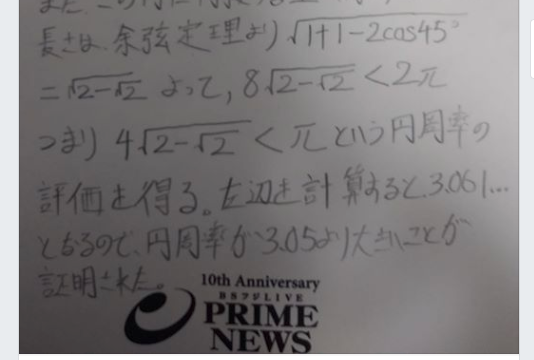 長さは、余弦定理より√1+1-2cos45°
=√2-√2 よって, 8√2-√2 <2π
つまり 4√2-√2 < π という円周率の
評価を得る。左辺を計算すると、3.061...
となるので、円周率が3.05より大きいことが
証明された。
10th Anniversary
BSフジLIVE
PRIME
NEWS